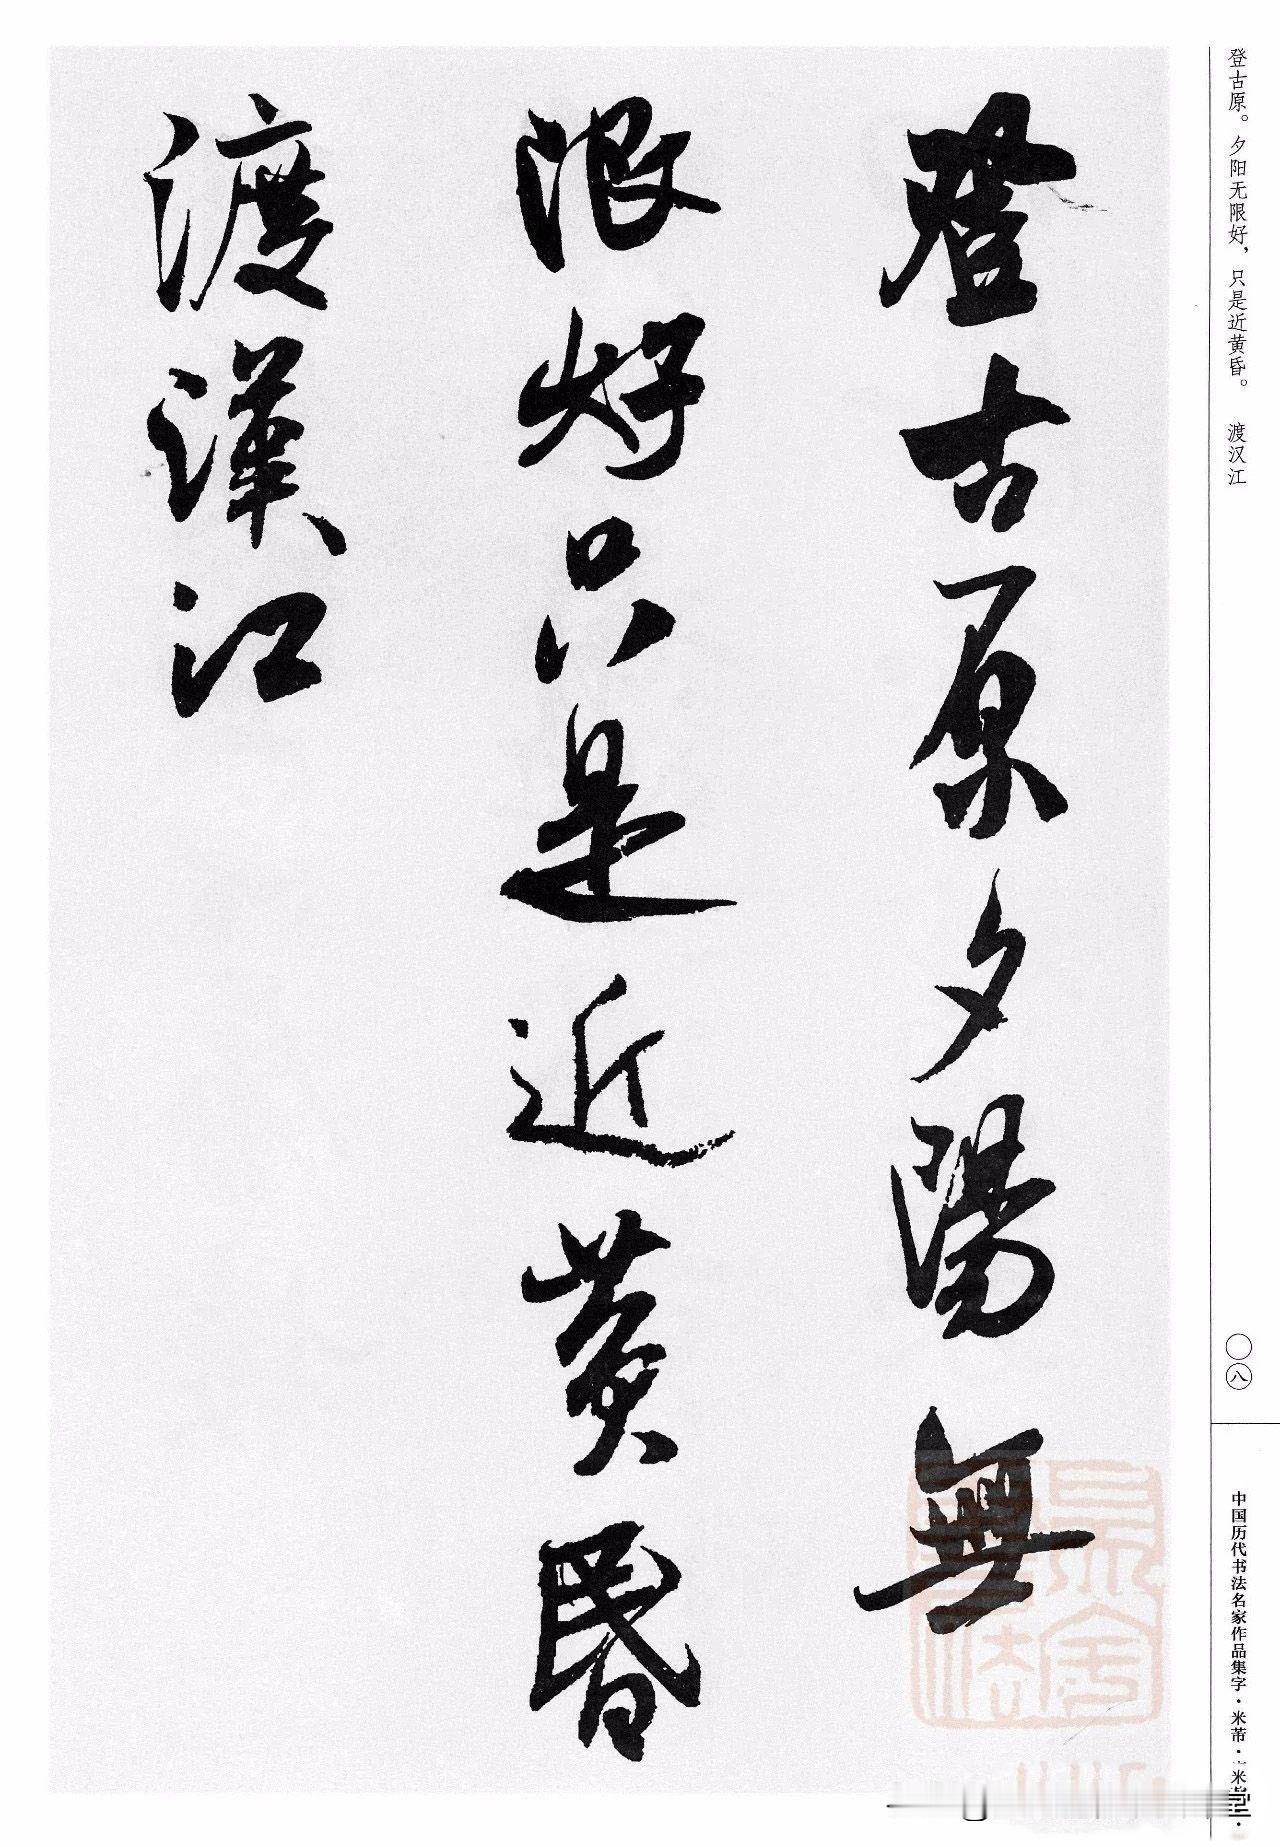 登古原夕陽無
限好只是近黄昏
渡漢江
登古原。夕阳无限好，只是近黄昏。 渡汉江
〇八
中国历代书法名家作品集字·米芾·